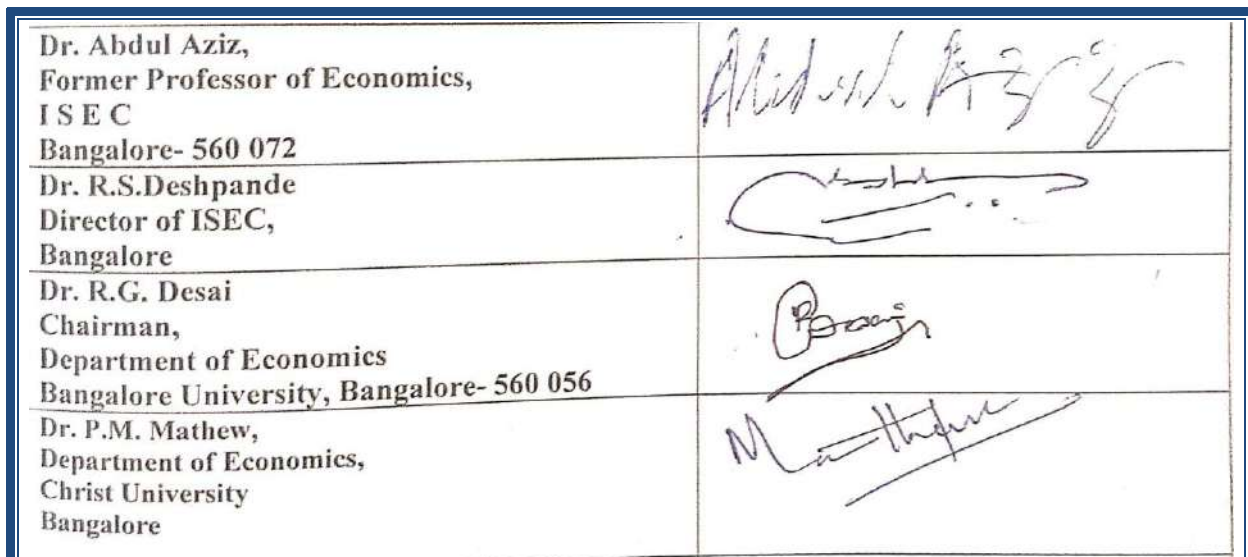 Dr. Abdul Aziz,
Former Professor of Economics,
I S E C
Bangalore- 560 072
Abdul Aziz
Dr. R.S.Deshpande
Director of ISEC,
Bangalore
Dr. R.G. Desai
Chairman,
Department of Economics
Bangalore University, Bangalore- 560 056
Dr. P.M. Mathew,
Department of Economics,
Christ University
Bangalore
Mathew